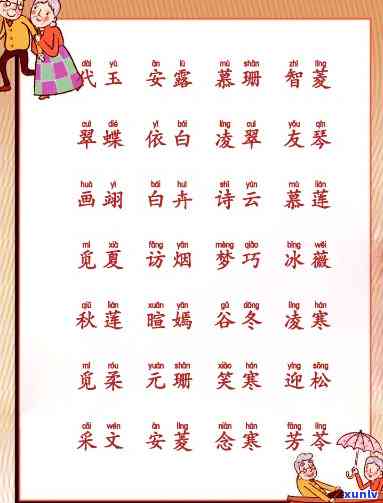 dài yù ān lù mù shān zhì líng
代玉 安露 慕珊 智菱
cuì dié yī bái líng cuì yǒu qín
翠蝶 依白 凌翠 友琴
huà yì bái huì shī yún mù lián
画翊 白卉 诗云 慕莲
mì xià fǎng yān mèng qiǎo bīng wēi
觅夏 访烟 梦巧 冰薇
qiū lián xuān yān gǔ dōng líng hán
秋莲 暄嫣 谷冬 凌寒
mì róu yuán shān xiào hán yíng sōng
觅柔 元珊 笑寒 迎松
cǎi wén ān líng niàn hán fāng líng
采文 安菱 念寒 芳苓
xunlv